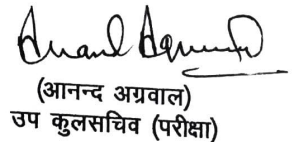 Anand Agarwal
(आनन्द अग्रवाल)
उप कुलसचिव (परीक्षा)